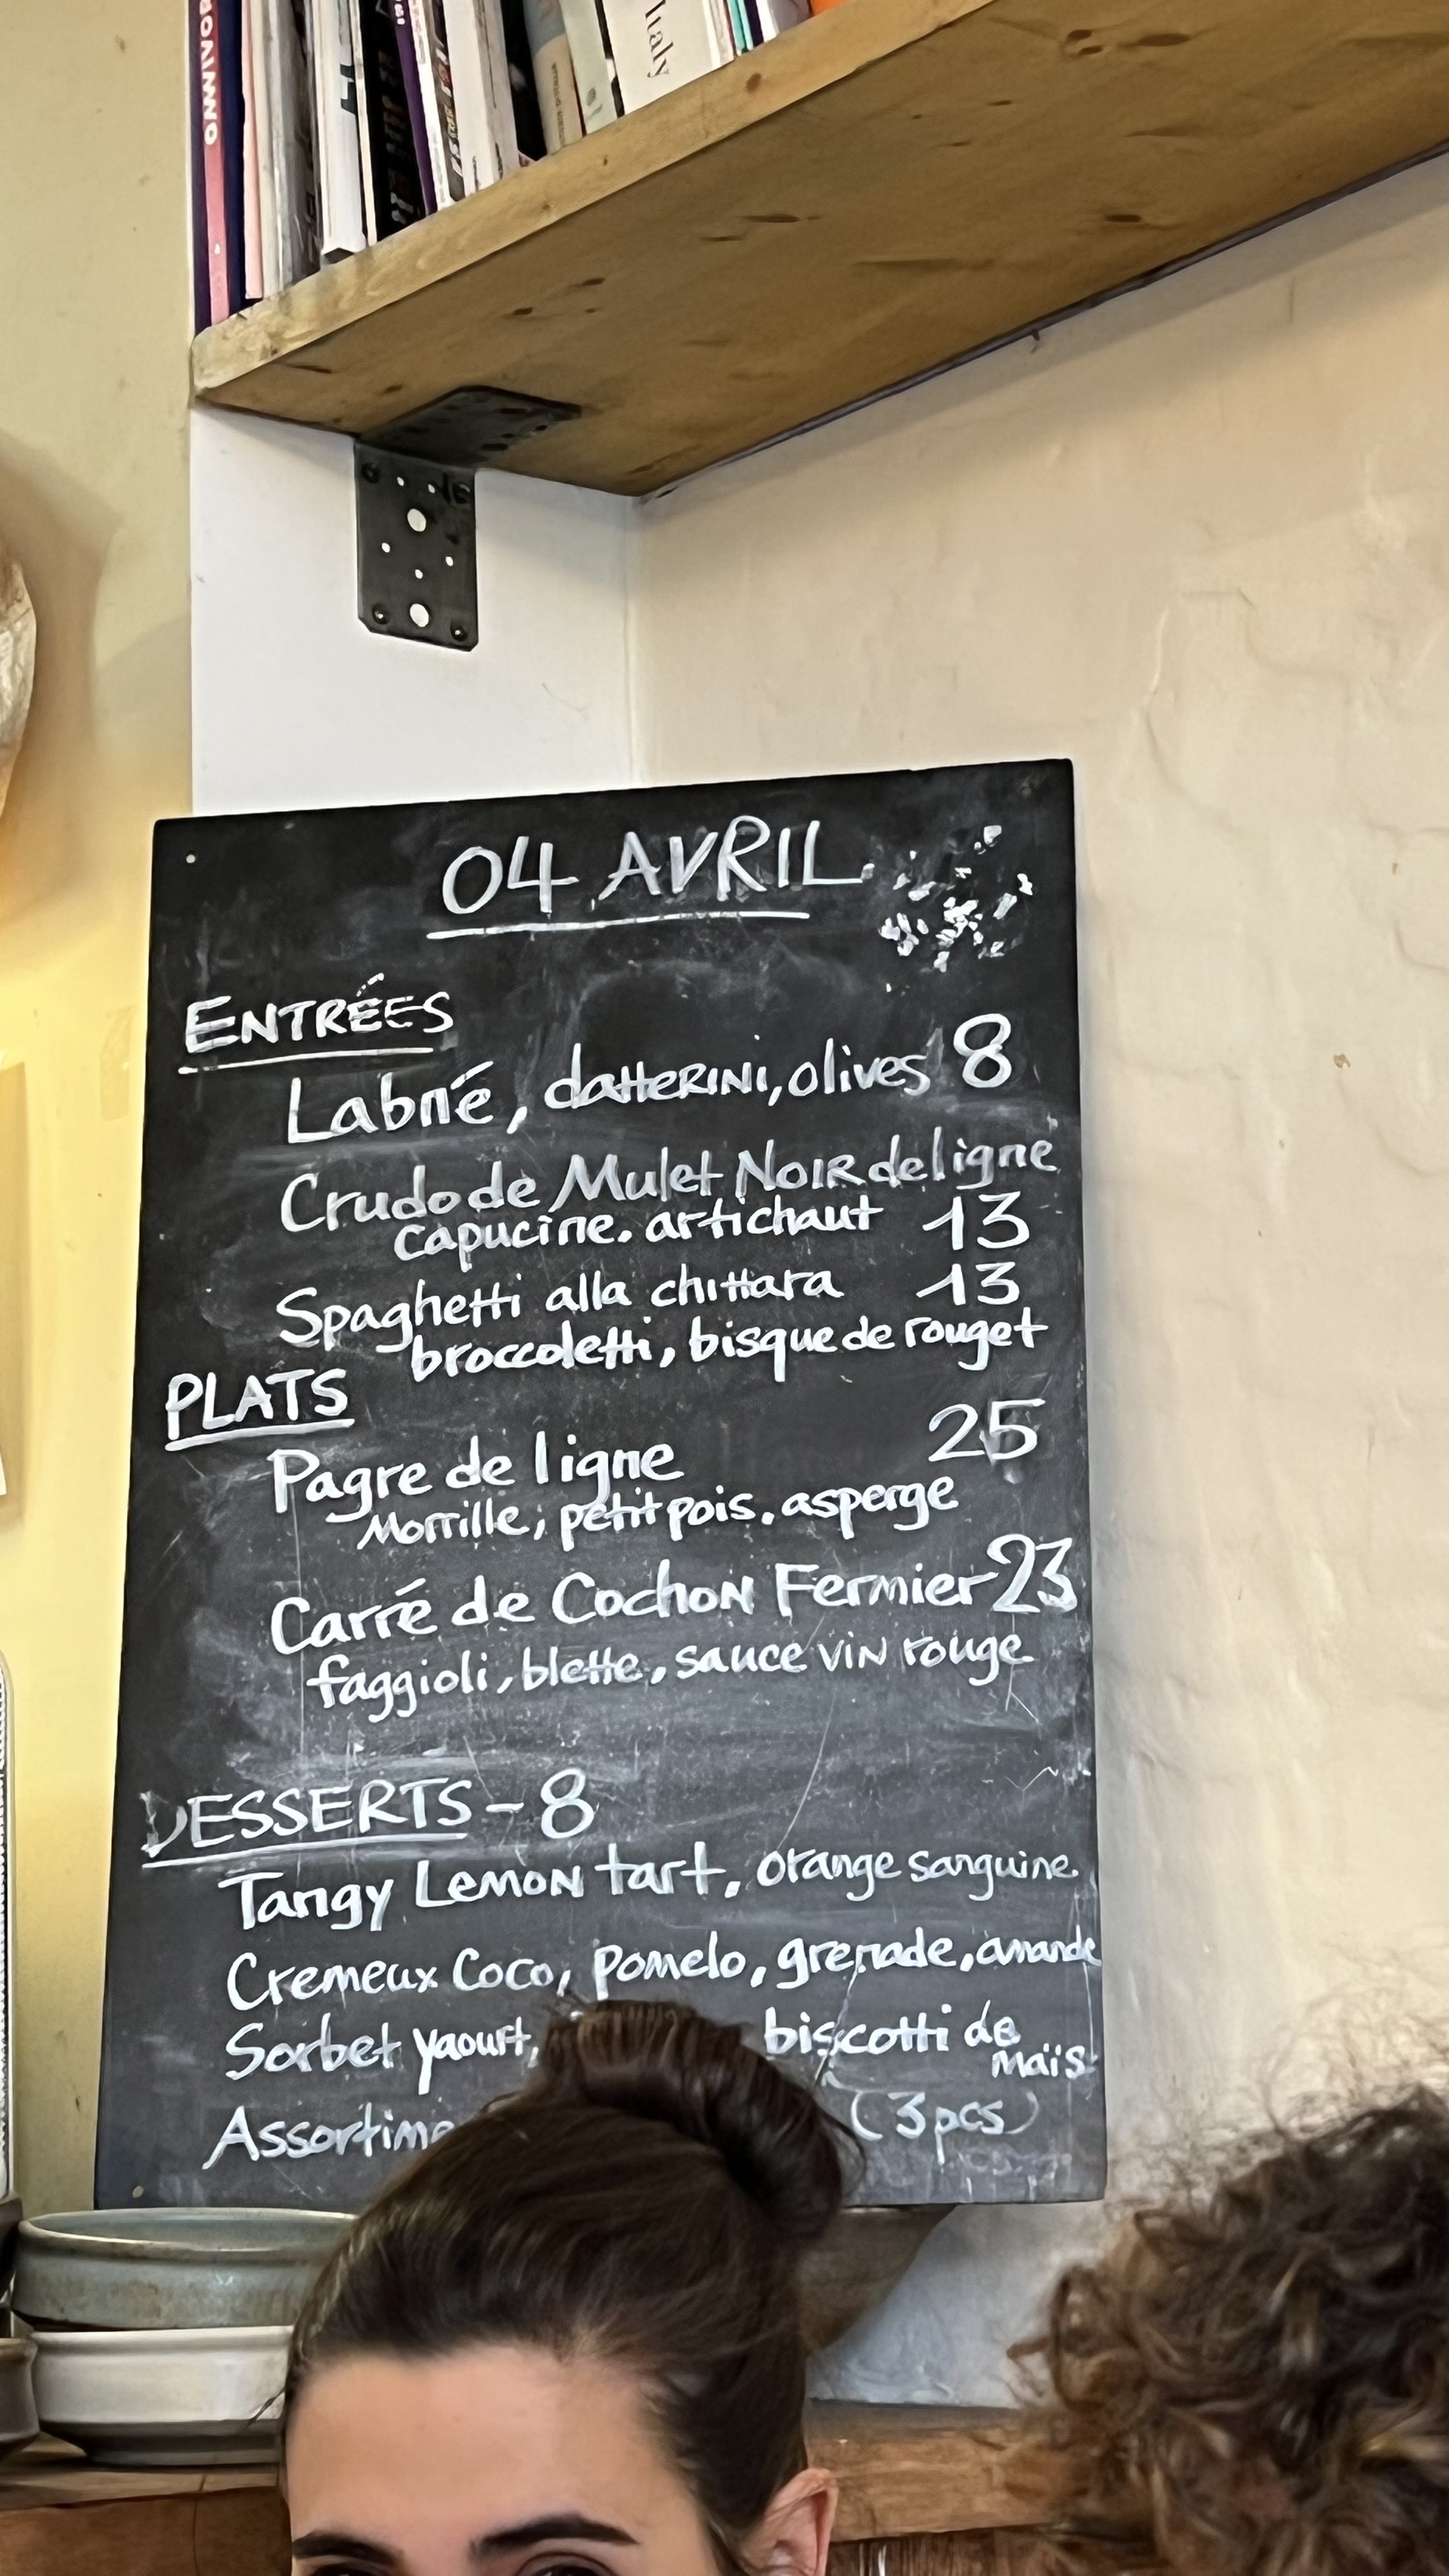 Italy
04 AVRIL
ENTRÉES
Labné, datterini, olives 8
Crudo de Mulet Noir de ligne
capucine. artichaut 13
Spaghetti alla chittara 13
broccoletti, bisque de rouget
PLATS
Pagre de ligne 25
Morrille, petit pois. asperge
Carré de Cochon Fermier 23
faggioli, blette, sauce vin rouge
DESSERTS - 8
Tangy Lemon tart, orange sanguine.
Cremeux Coco, pomelo, grenade, amande
Sorbet yaourt, biscotti de
maïs
(3pcs)